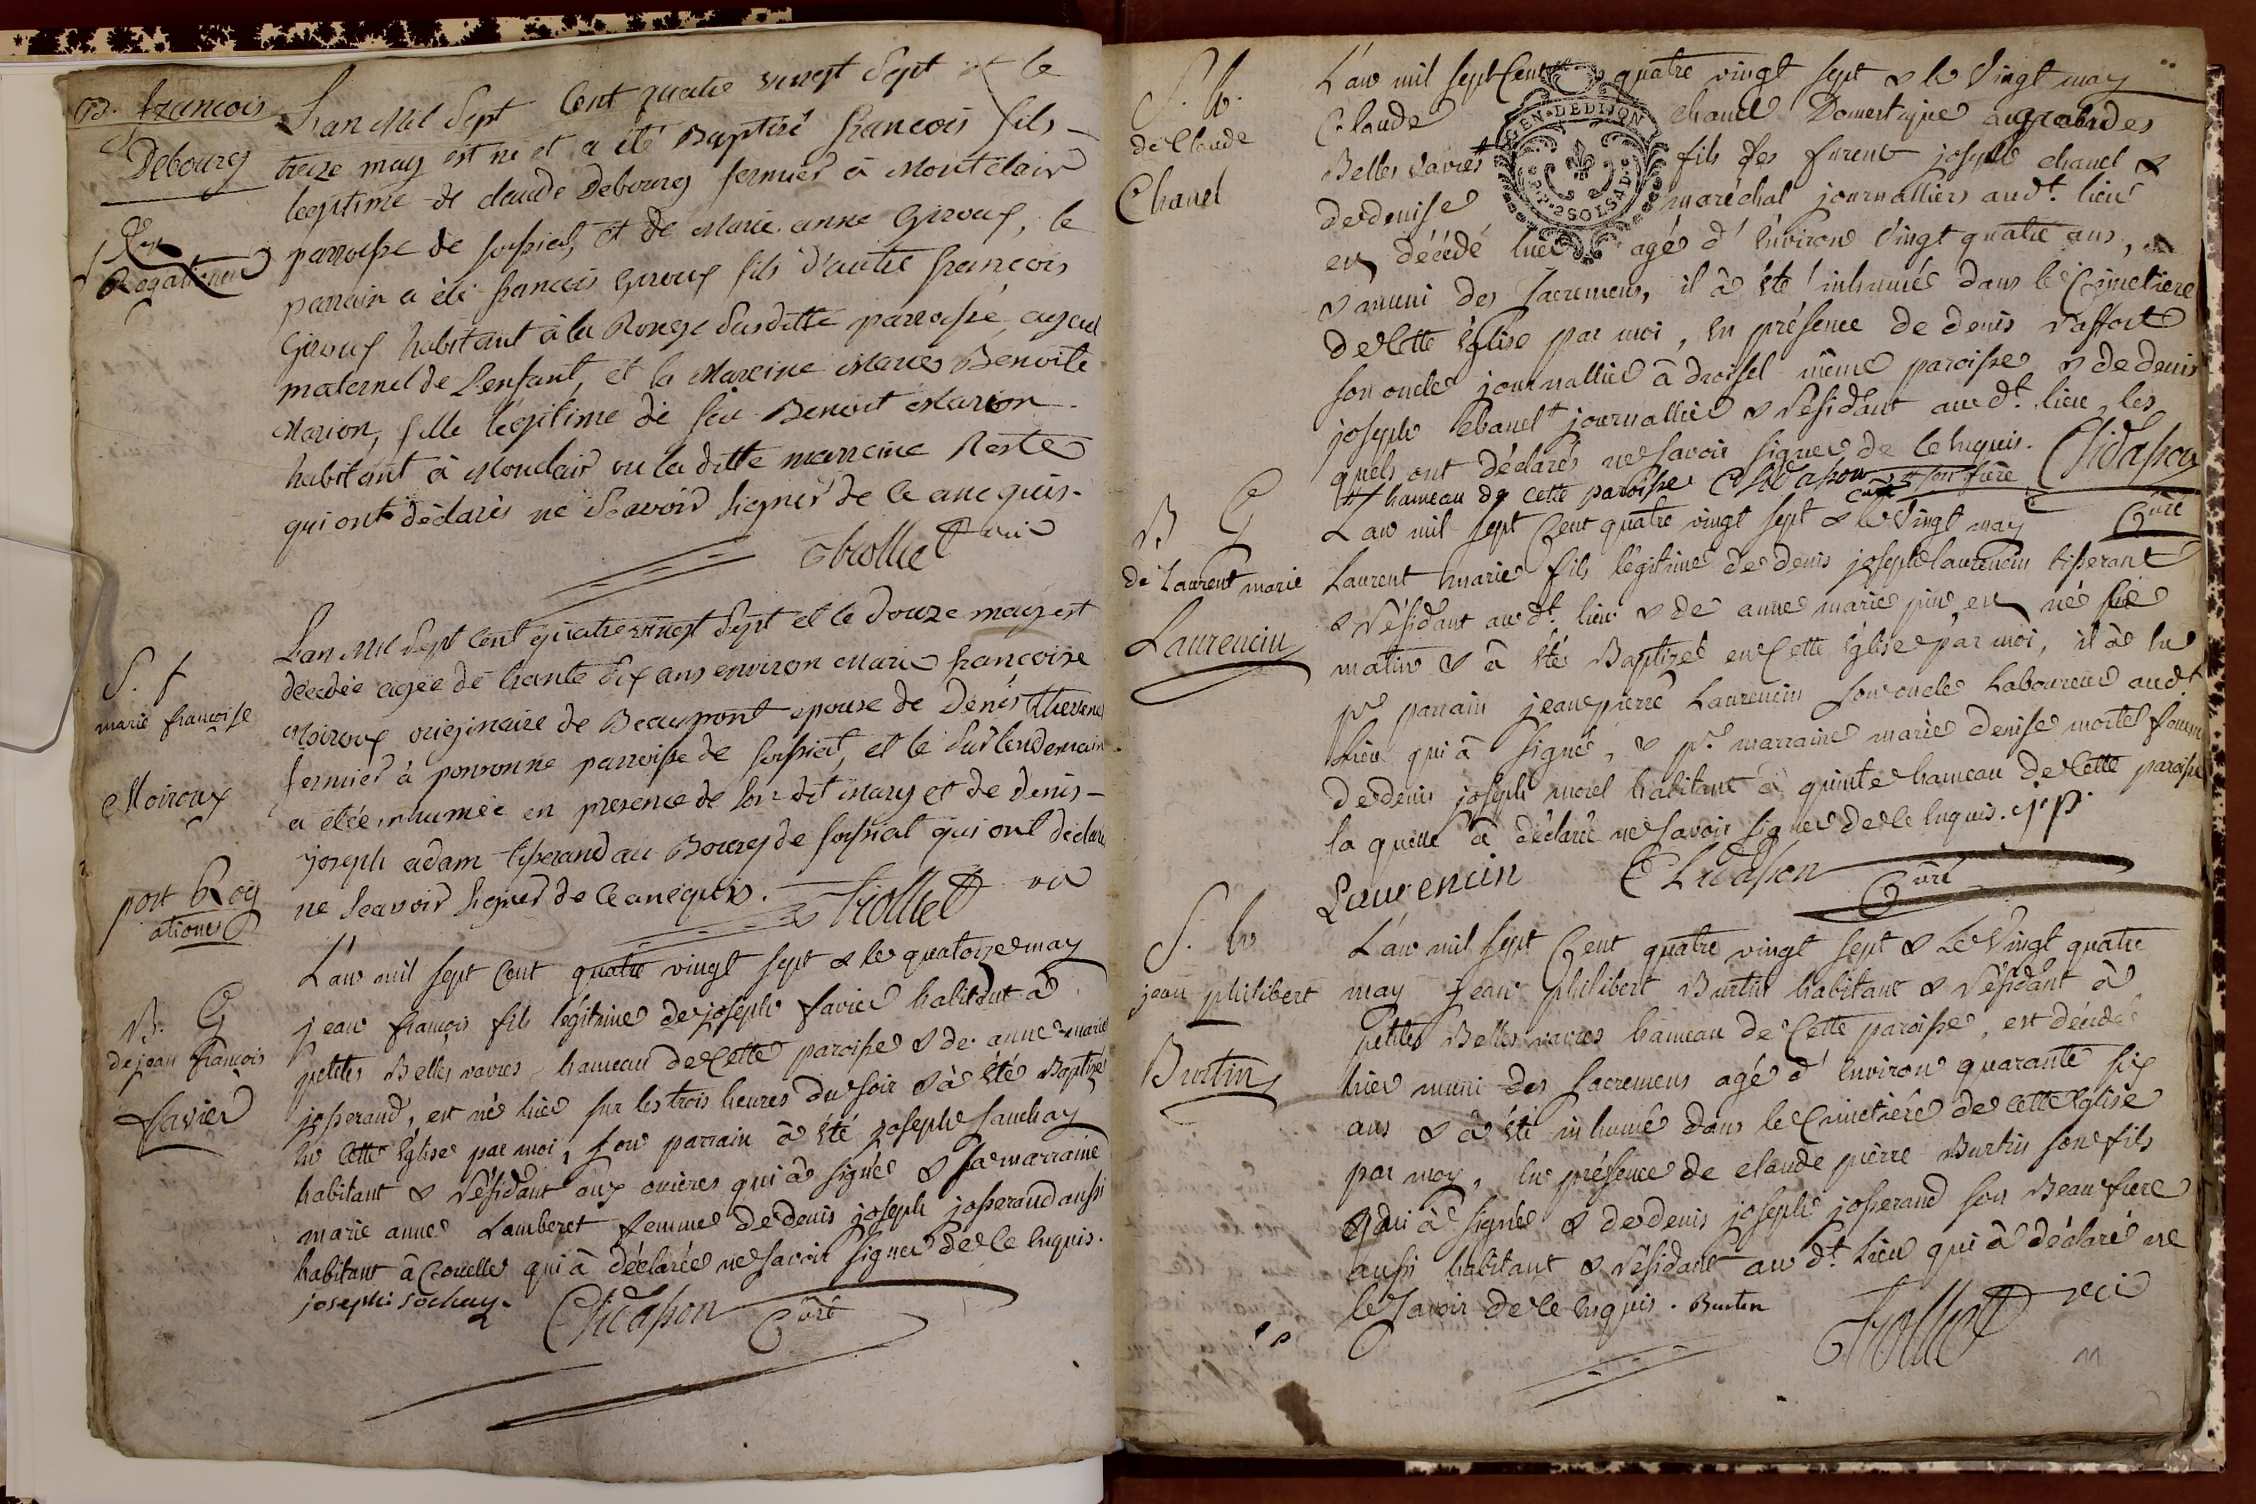 B. francois
Debourg
Lan Mil Sept Cent quatre vingt Sept et le
treze may est né et a été Baptisé francois fils
legitime de claude Debourg fermier à Montclair
parroisse de forsiat, et de Marie anne Giroux, le
parrain a été francois Giroux fils d'autre francois
Giroux habitant à la Ronge Susditte parroisse, ayeul
maternel de L'enfant, et la Mareine Marie Benoite
Marion, fille legitime de feu Benoit Marion
habitant à Monclair ou la ditte mareine Reste
qui ont déclarés ne Scavoir signer de ce enequis.
Trolliet vic
S. f
marie francoise
Moiroux
post Rog
ations
Lan Mil Sept Cent quatre vingt Sept et le Douze may est
décédée agée de trante Six ans environ Marie francoise
Moiroux originaire de Beaupont epouse de Denis Thevenet
fermier à ponronne parroisse de forsiat, et le Surlendemain
a été inhumée en presence de Son dit Mary et de Denis
joseph adam tisserand au Bourg de forsiat qui ont déclaré
ne Scavoir Signer de ce enequis.
Trolliet vic
B. G
de jean francois
favier
L'an mil sept cent quatre vingt sept & le quatorze may
jean françois fils légitime de joseph favier habitant à
petites Belles vavres hameau de cette paroisse & de anne marie
josserand, est né hier sur les trois heures du soir & à été Baptizé
en cette église par moi, son parrain à été joseph sauchay
habitant & résidant aux ovières qui à signé & sa marraine
marie anne Lamberet femme de denis joseph josserand aussi
habitant à Crouelle qui à déclarée ne savoir signer de ce enquis.
joseph sochay. Chidasson Curé
S. h.
de Claude
Chanel
L'an mil sept Cent quatre vingt sept & le Vingt may
Claude chanel Domestique aux grandes
Belles vavres # fils des furent joseph chanel &
de denise maréchal journalliers audt. lieu
est décédé hier agés d'environ vingt quatre ans,
& muni des Sacremens, il à été inhumé dans le Cimetiere
de cette église par moi, en présence de denis vaffort
son oncle journallier à droisel même paroisse & de denis
joseph chanel # journallier & résidant au dt. lieu, les
quels ont déclarés ne savoir signer de ce enquis. Chidasson
# hameau de cette paroisse Chidasson curé # son frère
Curé
GEN. DE DIJON
2 SOLS
B G
de Laurent marie
Laurencin
L'an mil sept Cent quatre vingt sept & le Vingt may
Laurent marie fils légitime de denis joseph laurencin tisserant
& résidant au dt. lieu & de anne marie pin est né le
matin & à été Baptizé en cette église par moi, il à eu
pr. parrain jean pierre Laurencin son oncle Laboureur audt.
Lieu qui à signé, & pr. marraine marie denise mortel femme
de denis joseph morel habitant à quinte hameau de cette paroisse
la quelle à déclaré ne savoir signer de ce enquis. j. p.
Laurencin Chidasson Curé
S. h
jean philibert
Burtin
L'an mil sept Cent quatre vingt sept & Le Vingt quatre
may jean philibert Burtin habitant & résidant à
petites Belles vavres hameau de cette paroisse, est décédé
hier muni des sacremens agé d'environ quarante six
ans & à été inhumé dans le Cimetière de cette église
par moy, en présence de claude pierre Burtin son fils
qui à signé & de denis joseph josserand son Beaufrere
aussi habitant & résidant au dt. Lieu qui à déclaré ne
le savoir de ce enquis. Burtin
Trolliet vic
11